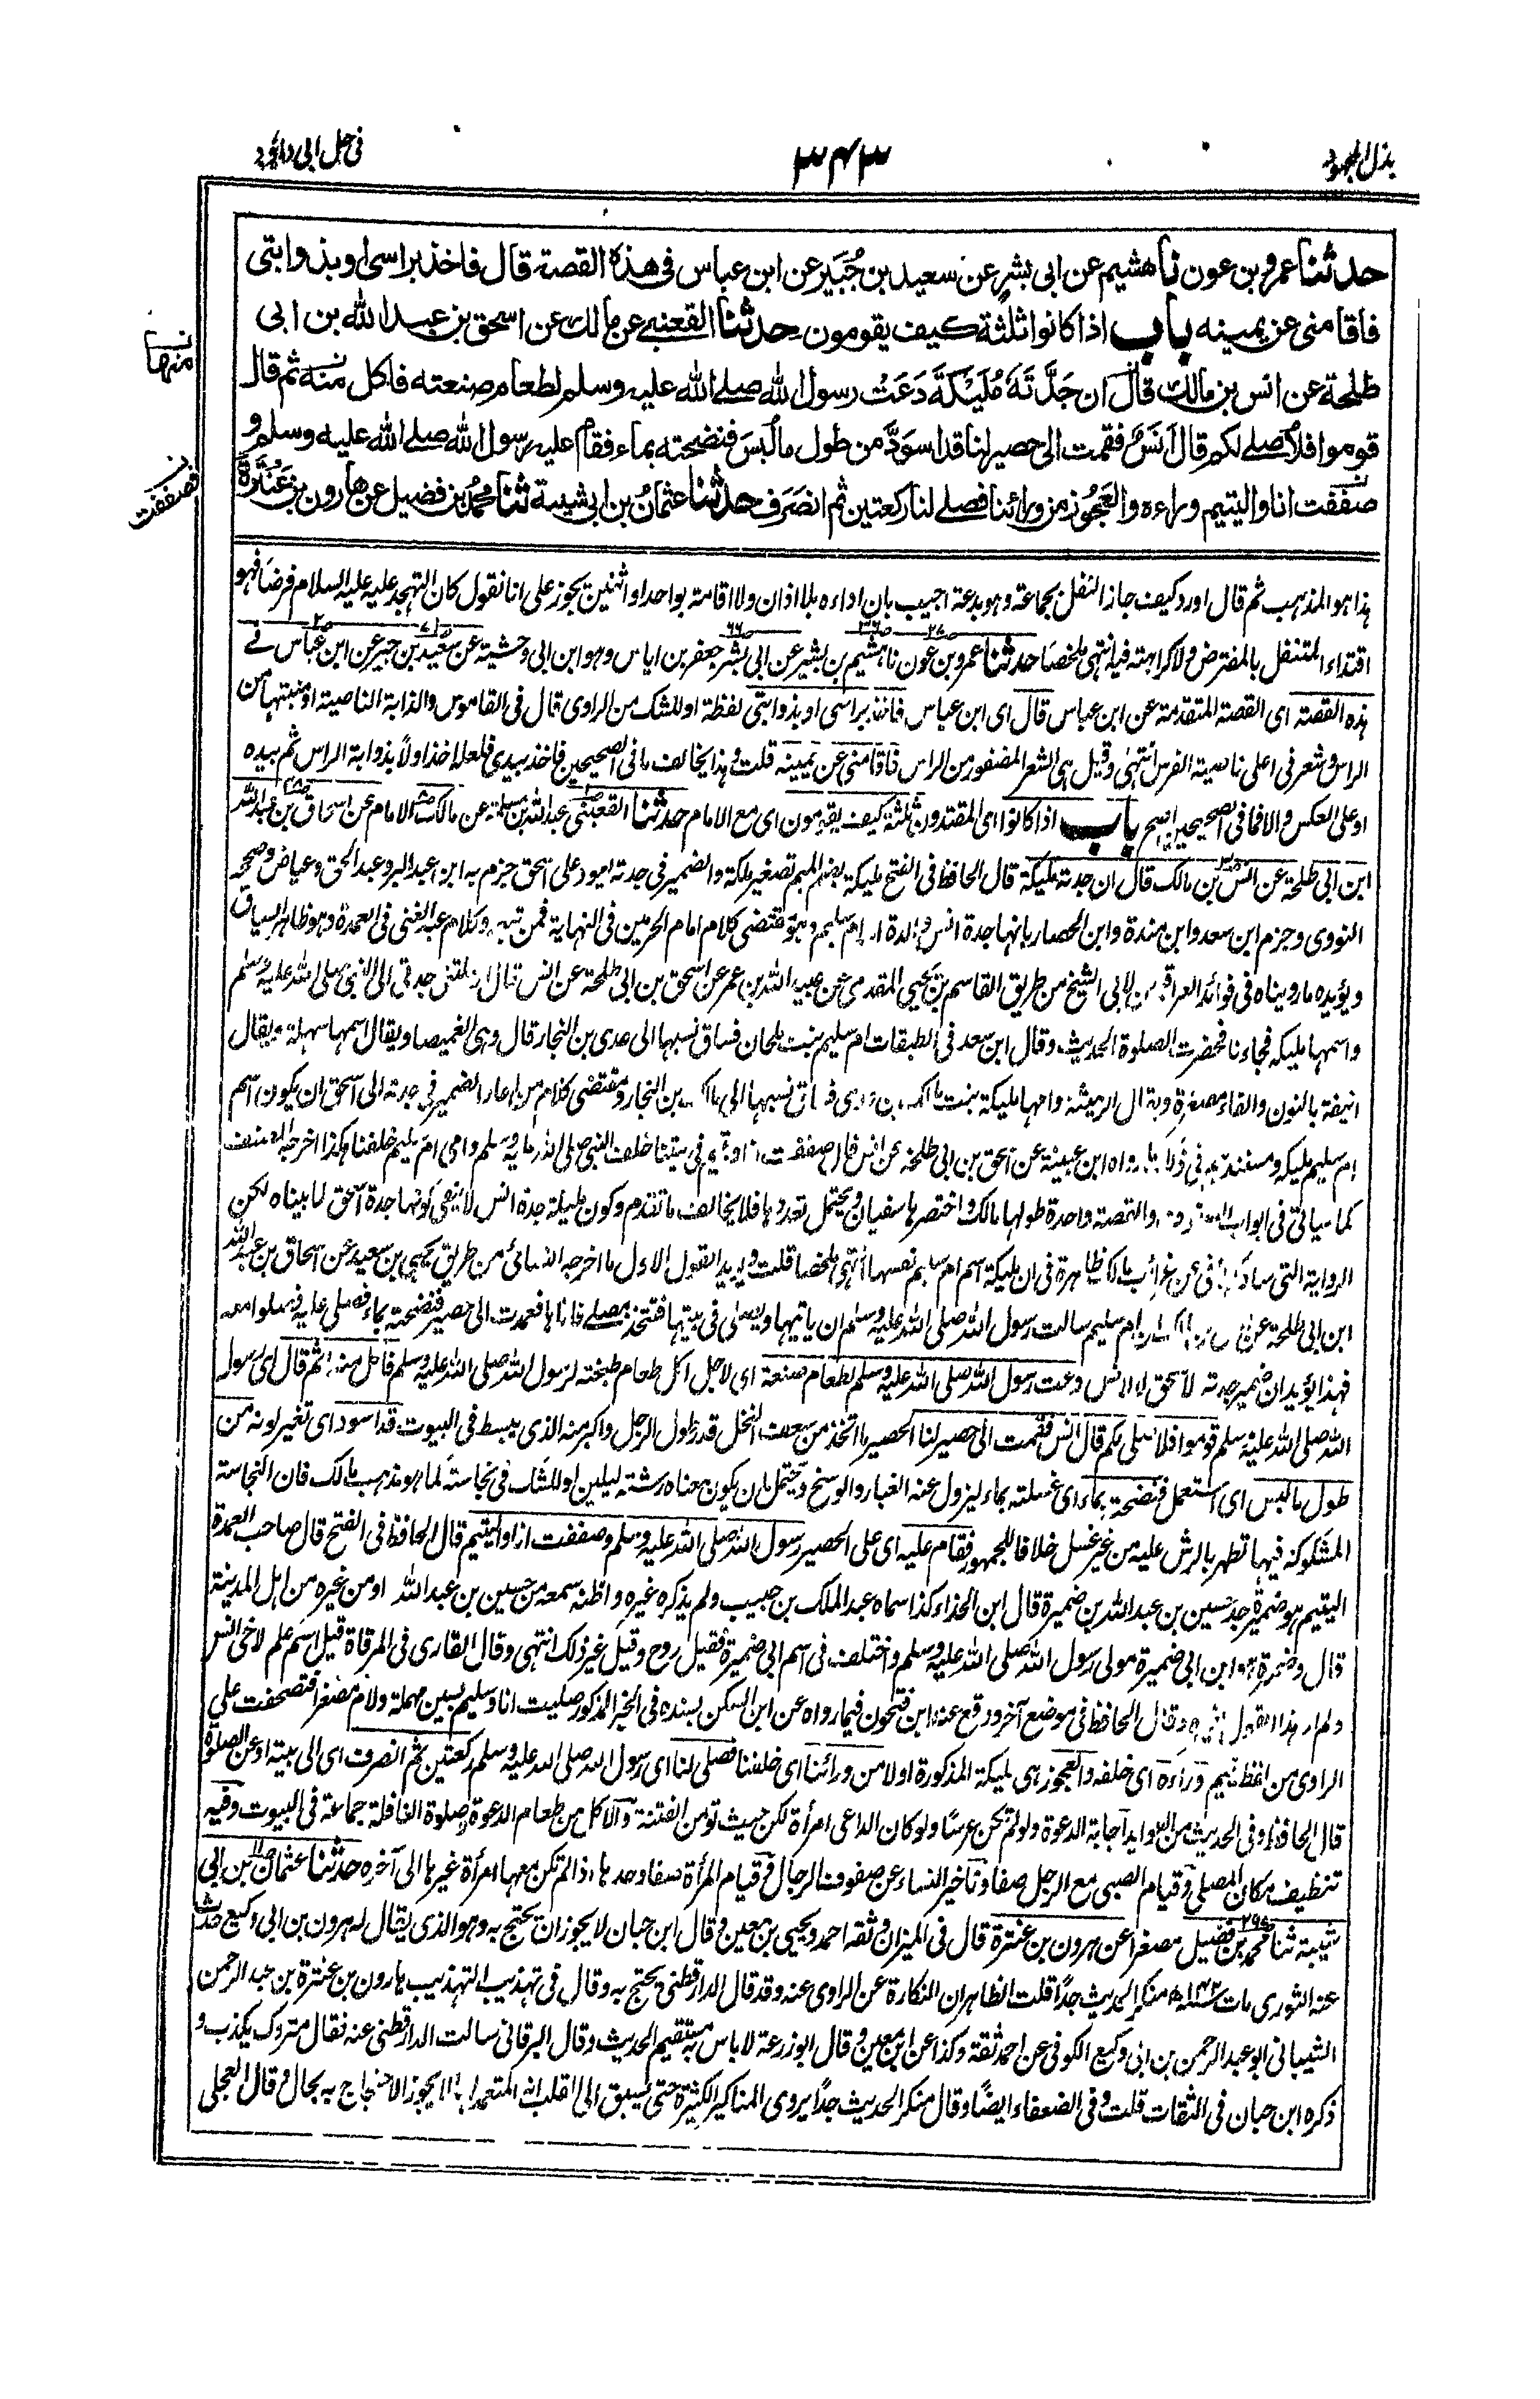 بذل المجهود
٣٤٣
فی حل ابی داؤد
حدثنا عمرو بن عون نا هشيم عن ابی بشر عن سعيد بن جُبَير عن ابن عباس فی هذه القصة قال فاخذ براسی او بذوابتی
فاقامنی عن يمينه باب اذا كانوا ثلثة كيف يقومون حدثنا القعنبی عن مالك عن اسحق بن عبد الله بن ابی
طلحة عن انس بن مالك قال ان جَدَّتَهٗ مُلَيْكَةَ دَعَتْ رسول الله صلے الله عليه وسلم لطعام صنعته فاكل منه ثم قال
قوموا فلأُصلے لكم قال اَنَسٌ فقمت الی حصير لنا قد اسوَدَّ من طول ما لُبِسَ فنضحته بماء فقام عليه رسول الله صلے الله عليه وسلم و
صففت انا واليتيم وراءه والعَجُوز من ورائنا فصلے لنا ركعتين ثم انصَرَف حدثنا عثمان بن ابی شيبة ثنا محمد بن فضيل عن هارون بن عَنْتَرَةَ
منها
فصففت
هذا هو المذهب ثم قال اورد كيف جاز النفل بجماعة وهو بدعة اجيب بان اداءه بلا اذان ولا اقامة بواحد او اثنين يجوز علی انا نقول كان التهجد عليه عليه السلام فرضا فهو
اقتداء المتنفل بالمفترض ولا كراهته فيه انتهی ملخصا حدثنا عمرو بن عون نا هشيم بن بشير عن ابی بشر جعفر بن اياس وهو ابن ابی وحشية عن سعيد بن جبير عن ابن عباس فے
هذه القصة ای القصة المتقدمة عن ابن عباس قال ای ابن عباس فاخذ براسی او بذوابتی لفظة او للشك من الراوی قال فی القاموس والذابة الناصية او منبتها من
الراس وشعر فی اعلی ناصية الفرس انتهی وقيل هی الشعر المضفور من الراس فاقامنی عن يمينه قلت وهذا يخالف ما فی الصحيحين فاخذ بيدی فلعله اخذ اولاً بذوابة الراس ثم بيده
او علی العكس والا فما فی الصحيحين اصح باب اذا كانوا ای المقتدون ثلثة كيف يقومون ای مع الامام حدثنا القعنبی عبد الله بن مسلمة عن مالك الامام عن اسحاق بن عبد الله
ابن ابی طلحة عن انس بن مالك قال ان جدته مليكة قال الحافظ فی الفتح مليكة بضم الميم تصغير ملكة والضمير فی جدته يعود علی اسحق جزم به ابن عبد البر وعبد الحق وعياض وصححه
النووی وجزم ابن سعد وابن مندة وابن الحصار بانها جدة انس والدة امه ام سليم وهو مقتضی كلام امام الحرمين فی النهاية فمن تبعه وكلام عبد الغنی فی العمدة وهو ظاهر السياق
ويؤيده ما رويناه فی فوائد العراقيين لابی الشيخ من طريق القاسم بن يحيی المقدمی عن عبيد الله بن عمر عن اسحق بن ابی طلحة عن انس قال ارسلتنی جدتی الی النبی صلی الله عليه وسلم
واسمها مليكه فجاءنا فحضرت الصلوة الحديث وقال ابن سعد فی الطبقات ام سليم بنت ملحان فساق نسبها الی عدی بن النجار قال وهی الغميصا ويقال اسمها سهلة ويقال
انيفة بالنون والفاء مصغرة ويقال الرميثة وامها مليكة بنت مالك بن عدی فساق نسبها الی مالك بن النجار ومقتضی كلام من اعاد الضمير فی جدته الی اسحق ان يكون اسم
ام سليم مليكه ومستندهم فی ذلك ما رواه ابن عيينة عن اسحق بن ابی طلحة عن انس قال صففت انا ويتيم فی بيتنا خلف النبی صلی الله عليه وسلم وامی ام سليم خلفنا هكذا اخرجه المصنف
كما سياتی فی ابواب الصفوف والقصة واحدة طولها مالك واختصرها سفيان ويحتمل تعددها فلا يخالف ما تقدم وكون مليكة جدة انس لا ينفی كونها جدة اسحق لما بيناه لكن
الرواية التی ساذكرها عن غرائب مالك ظاهرة فی ان مليكة اسم ام سليم نفسها انتهی ملخصا قلت ويريد القول الاول ما اخرجه النسائی من طريق يحيی بن سعيد عن اسحاق بن عبد الله
ابن ابی طلحة عن انس بن مالك ان ام سليم سالت رسول الله صلی الله عليه وسلم ان ياتيها ويصلی فی بيتها فتتخذه مصلے فاتاها فعمدت الی حصير فنضحته بماء فصلی عليه وصلوا معه
فهذا يؤيد ان ضمير جدته لاسحق لا لانس دعت رسول الله صلی الله عليه وسلم لطعام صنعة ای لاجل اكل طعام طبخته لرسول الله صلی الله عليه وسلم فاكل منه ثم قال ای رسول
الله صلی الله عليه وسلم قوموا فلاصلی لكم قال انس فقمت الی حصير لنا الحصير ما اتخذ من سعف النخل قدر طول الرجل واكبر منه الذی يبسط فی البيوت قد اسود ای تغير لونه من
طول ما لبس ای استعمل فنضحته بماء ای غسلته بماء ليزول عنه الغبار والوسخ ويحتمل ان يكون معناه رشته ليلين او للشك فی نجاسته كما هو مذهب مالك فان النجاسة
المشكوكة فيها تطهر بالرش عليه من غير غسل خلافا للجمهور فقام عليه ای علی الحصير رسول الله صلی الله عليه وسلم وصففت انا واليتيم قال الحافظ فی الفتح قال صاحب العمدة
اليتيم هو ضميرة جد حسين بن عبد الله بن ضميرة قال ابن الحذاء كذا سماه عبد الملك بن حبيب ولم يذكره غيره واظنه سمعه من حسين بن عبد الله او من غيره من اهل المدينة
قال وضميرة هو ابن ابی ضميرة مولی رسول الله صلی الله عليه وسلم واختلف فی اسم ابی ضميرة فقيل روح وقيل غير ذلك انتهی وقال القاری فی المرقاة قيل اسم علم لاخی انس
ولم ار هذا القول لغيره وقال الحافظ فی موضع آخر ووقع عند ابن فتحون فيما رواه عن ابن السكن بسنده فی الخبر المذكور صليت انا وسليم بسين مهملة ولام مصغرا فتصحفت علی
الراوی من لفظ يتيم وراءه ای خلفه والعجوز هی مليكة المذكورة اولا من ورائنا ای خلفنا فصلی لنا ای رسول الله صلی الله عليه وسلم ركعتين ثم انصرف ای الی بيته او عن الصلوة
قال الحافظ وفی الحديث من الفوايد اجابة الدعوة ولو لم تكن عرسًا ولو كان الداعی امرأة لكن حيث تومن الفتنة والاكل من طعام الدعوة وصلوة النافلة جماعة فی البيوت وفيه
تنظيف مكان المصلی وقيام الصبی مع الرجل صفا وتاخير النساء عن صفوف الرجال وقيام المرأة صفا وحدها اذا لم تكن معها امرأة غيرها الی آخره حدثنا عثمان بن ابی
شيبة ثنا محمد بن فضيل مصغرا عن هرون بن عنترة قال فی الميزان وثقه احمد ويحيی بن معين وقال ابن حبان لا يجوز ان يحتج به وهو الذی يقال له هرون بن ابی وكيع حدث
عنه الثوری مات سنة ١٤٢ه منكر الحديث جدًا قلت الظاهر ان النكارة عن الراوی عنه وقد قال الدارقطنی يحتج به وقال فی تهذيب التهذيب هارون بن عنترة بن عبد الرحمن
الشيبانی ابو عبد الرحمن بن ابی وكيع الكوفی عن احمد ثقة وكذا عن ابن معين وقال ابو زرعة لا باس به مستقيم الحديث وقال البرقانی سالت الدارقطنی عنه فقال متروك يكذب و
ذكره ابن حبان فی الثقات قلت وفی الضعفاء ايضًا وقال منكر الحديث جدًا يروی المناكير الكثيرة حتی يسبق الی القلب انه المتعمد لها لا يجوز الاحتجاج به بحال وقال العجلی